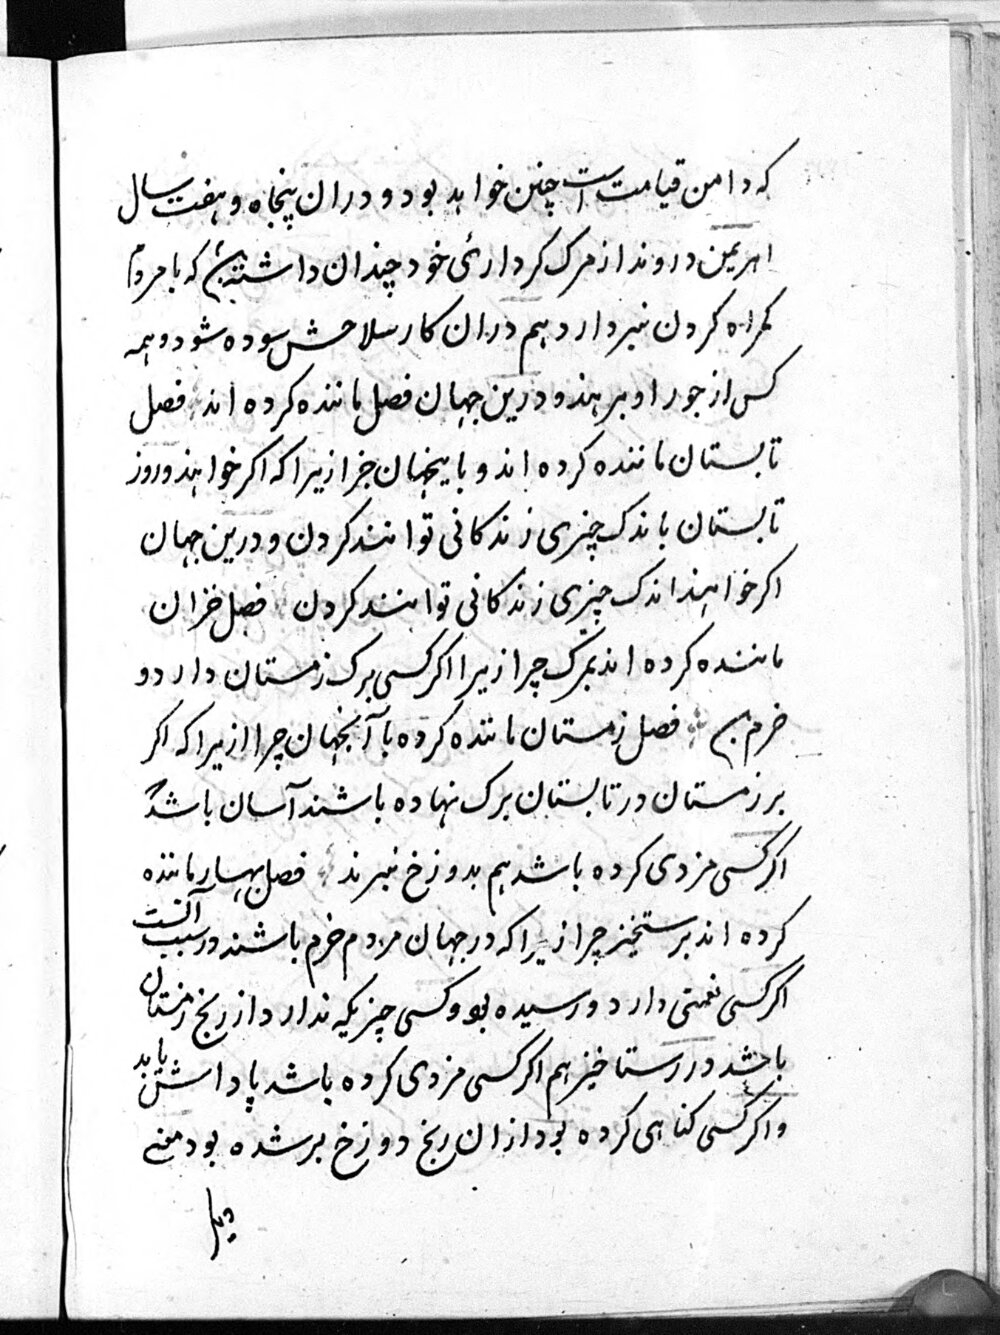 که دامن قیامت است چنین خواهد بود و دران پنجاه و هفت سال
اهریمن دروند از مرک کردارئی خود چندان داشته که با مردم
کمراه کردن نبردارد هم دران کار سلاحش سوده شود و همه
کس از جور او برهند و درین جهان فصل ماننده کرده اند فصل
تابستان ماننده کرده اند و باینجهان چرا زیرا که اکر خواهند و روز
تابستان باندک چیزی زندکانی توانند کردن و درین جهان
اکر خواهند اندک چیزی زندکانی توانند کردن فصل خزان
ماننده کرده اند بمرک چرا زیرا اکر کسی برک زمستان دارد و
خرم فصل زمستان ماننده کرده با آنجهان چرا ازیرا که اکر
بر زمستان در تابستان برک نهاده باشند آسان باشد
اکر کسی مزدی کرده باشد هم بدوزخ نبرند فصل بهار ماننده
کرده اند برستخیز چرا زیرا که در جهان مردم خرم باشند در سبب آنست
اکر کسی نعمتی دارد و رسیده بود و کسی چیزیکه ندارد از رنج زمستان
باشد در رستاخیز هم اکر کسی مزدی کرده باشد پاداشش یابد
و اکر کسی کناهی کرده بود ازان رنج دوزخ برشده بود معنی
دیگر